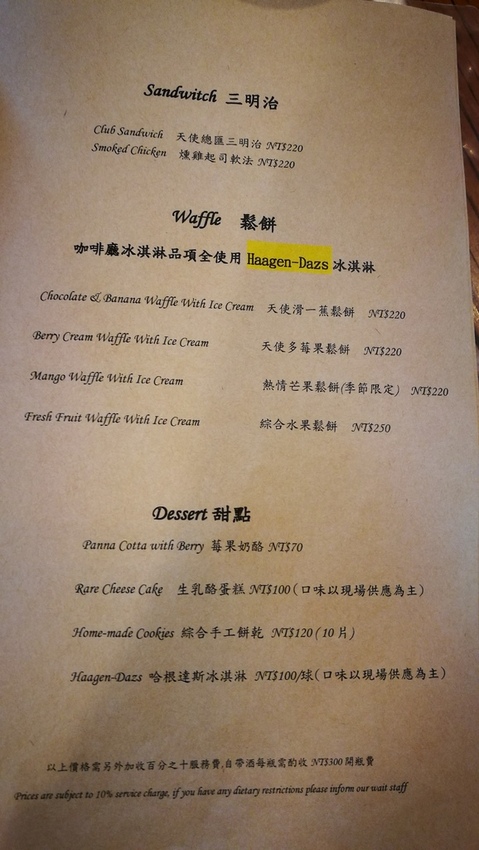 Sandwitch 三明治
Club Sandwich 天使總匯三明治 NT$220
Smoked Chicken 燻雞起司軟法 NT$220
Waffle 鬆餅
咖啡廳冰淇淋品項全使用 Haagen-Dazs 冰淇淋
Chocolate & Banana Waffle With Ice Cream 天使滑一蕉鬆餅 NT$220
Berry Cream Waffle With Ice Cream 天使多莓果鬆餅 NT$220
Mango Waffle With Ice Cream 熱情芒果鬆餅(季節限定) NT$220
Fresh Fruit Waffle With Ice Cream 綜合水果鬆餅 NT$250
Dessert 甜點
Panna Cotta with Berry 莓果奶酪 NT$70
Rare Cheese Cake 生乳酪蛋糕 NT$100(口味以現場供應為主)
Home-made Cookies 綜合手工餅乾 NT$120(10 片)
Haagen-Dazs 哈根達斯冰淇淋 NT$100/球(口味以現場供應為主)
以上價格需另外加收百分之十服務費,自帶酒每瓶需酌收 NT$300 開瓶費
Prices are subject to 10% service charge, if you have any dietary restrictions please inform our wait staff